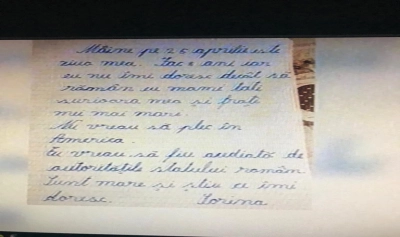 Mâine pe 25 aprilie este
ziua mea. Fac 8 ani iar
eu nu îmi doresc decât să
rămân cu mami tati
surioara mea și frați
mei mai mari.
Nu vreau să plec în
America.
Eu vreau să fiu audiată de
autoritățile statului român
Sunt mare și știu ce îmi
doresc. Sorina